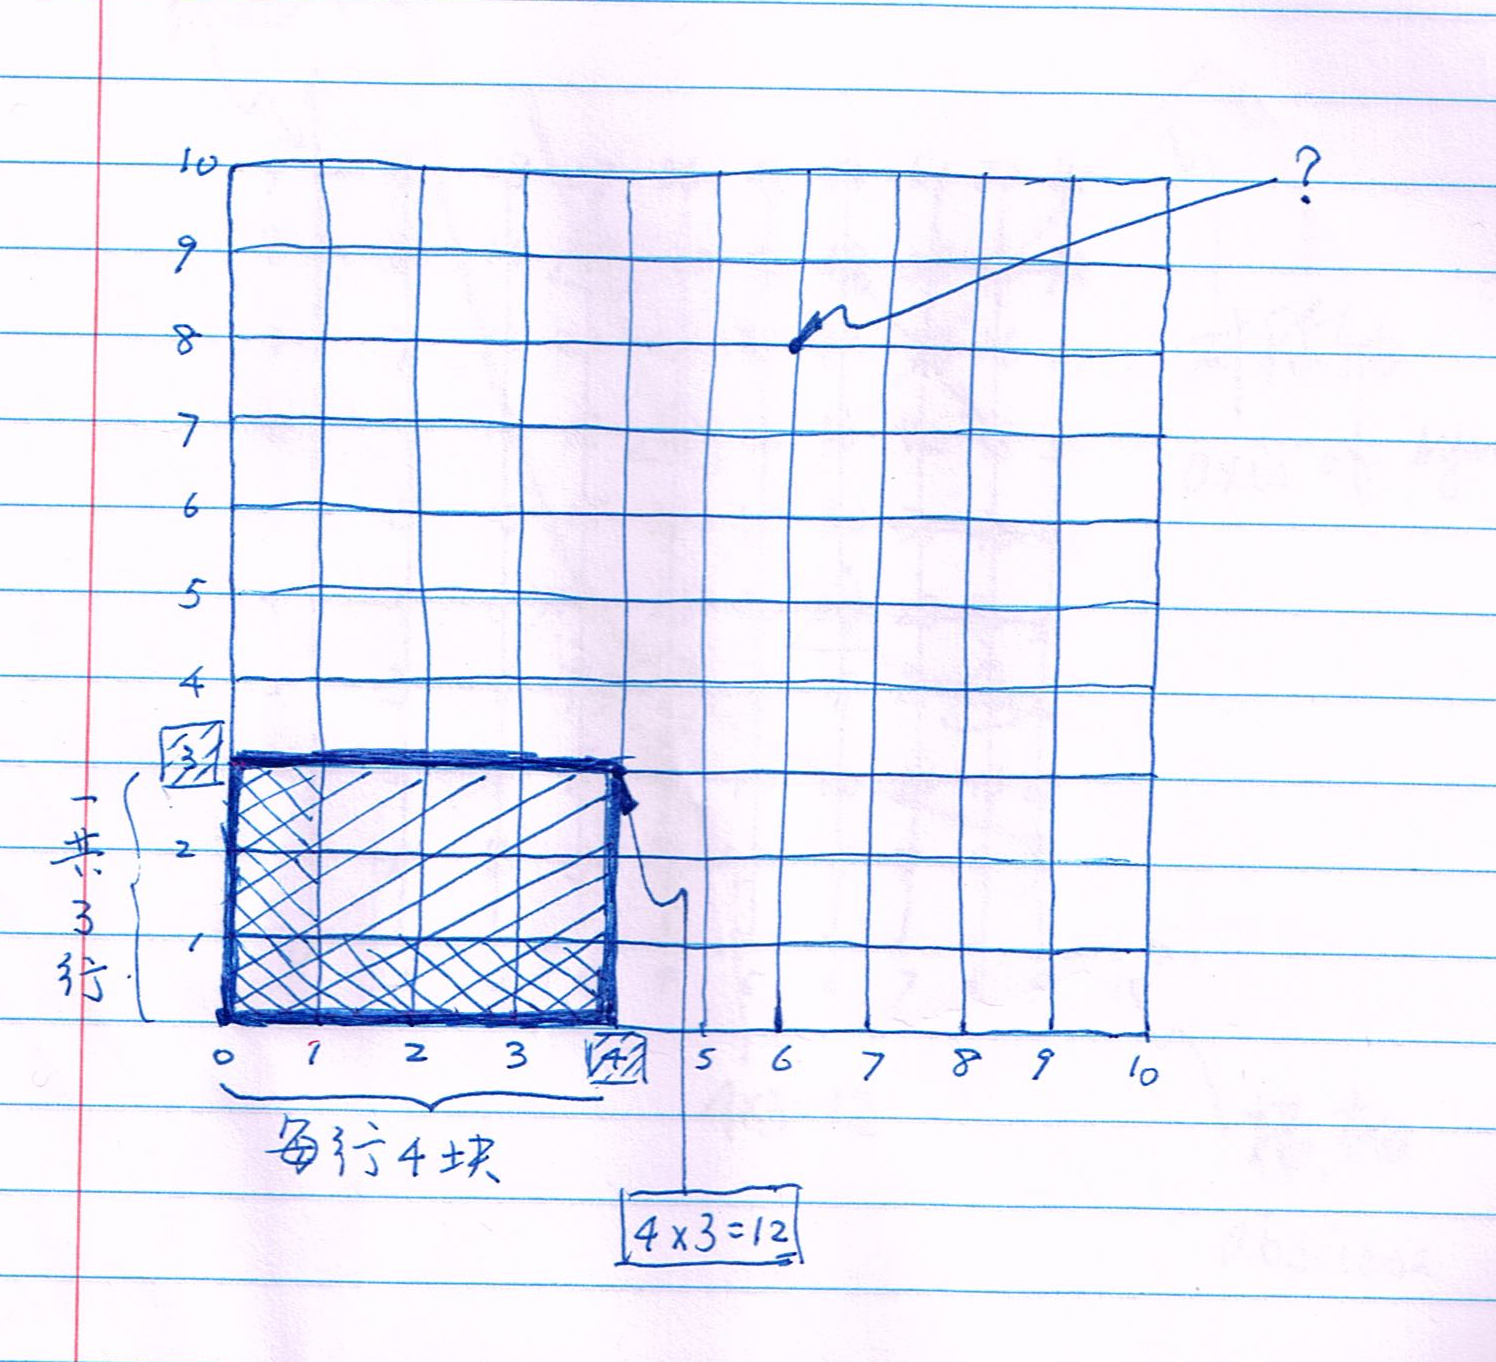 10
?
9
8
7
6
5
4
3
2
1
一共3行
0 1 2 3 4 5 6 7 8 9 10
每行4块
4×3=12